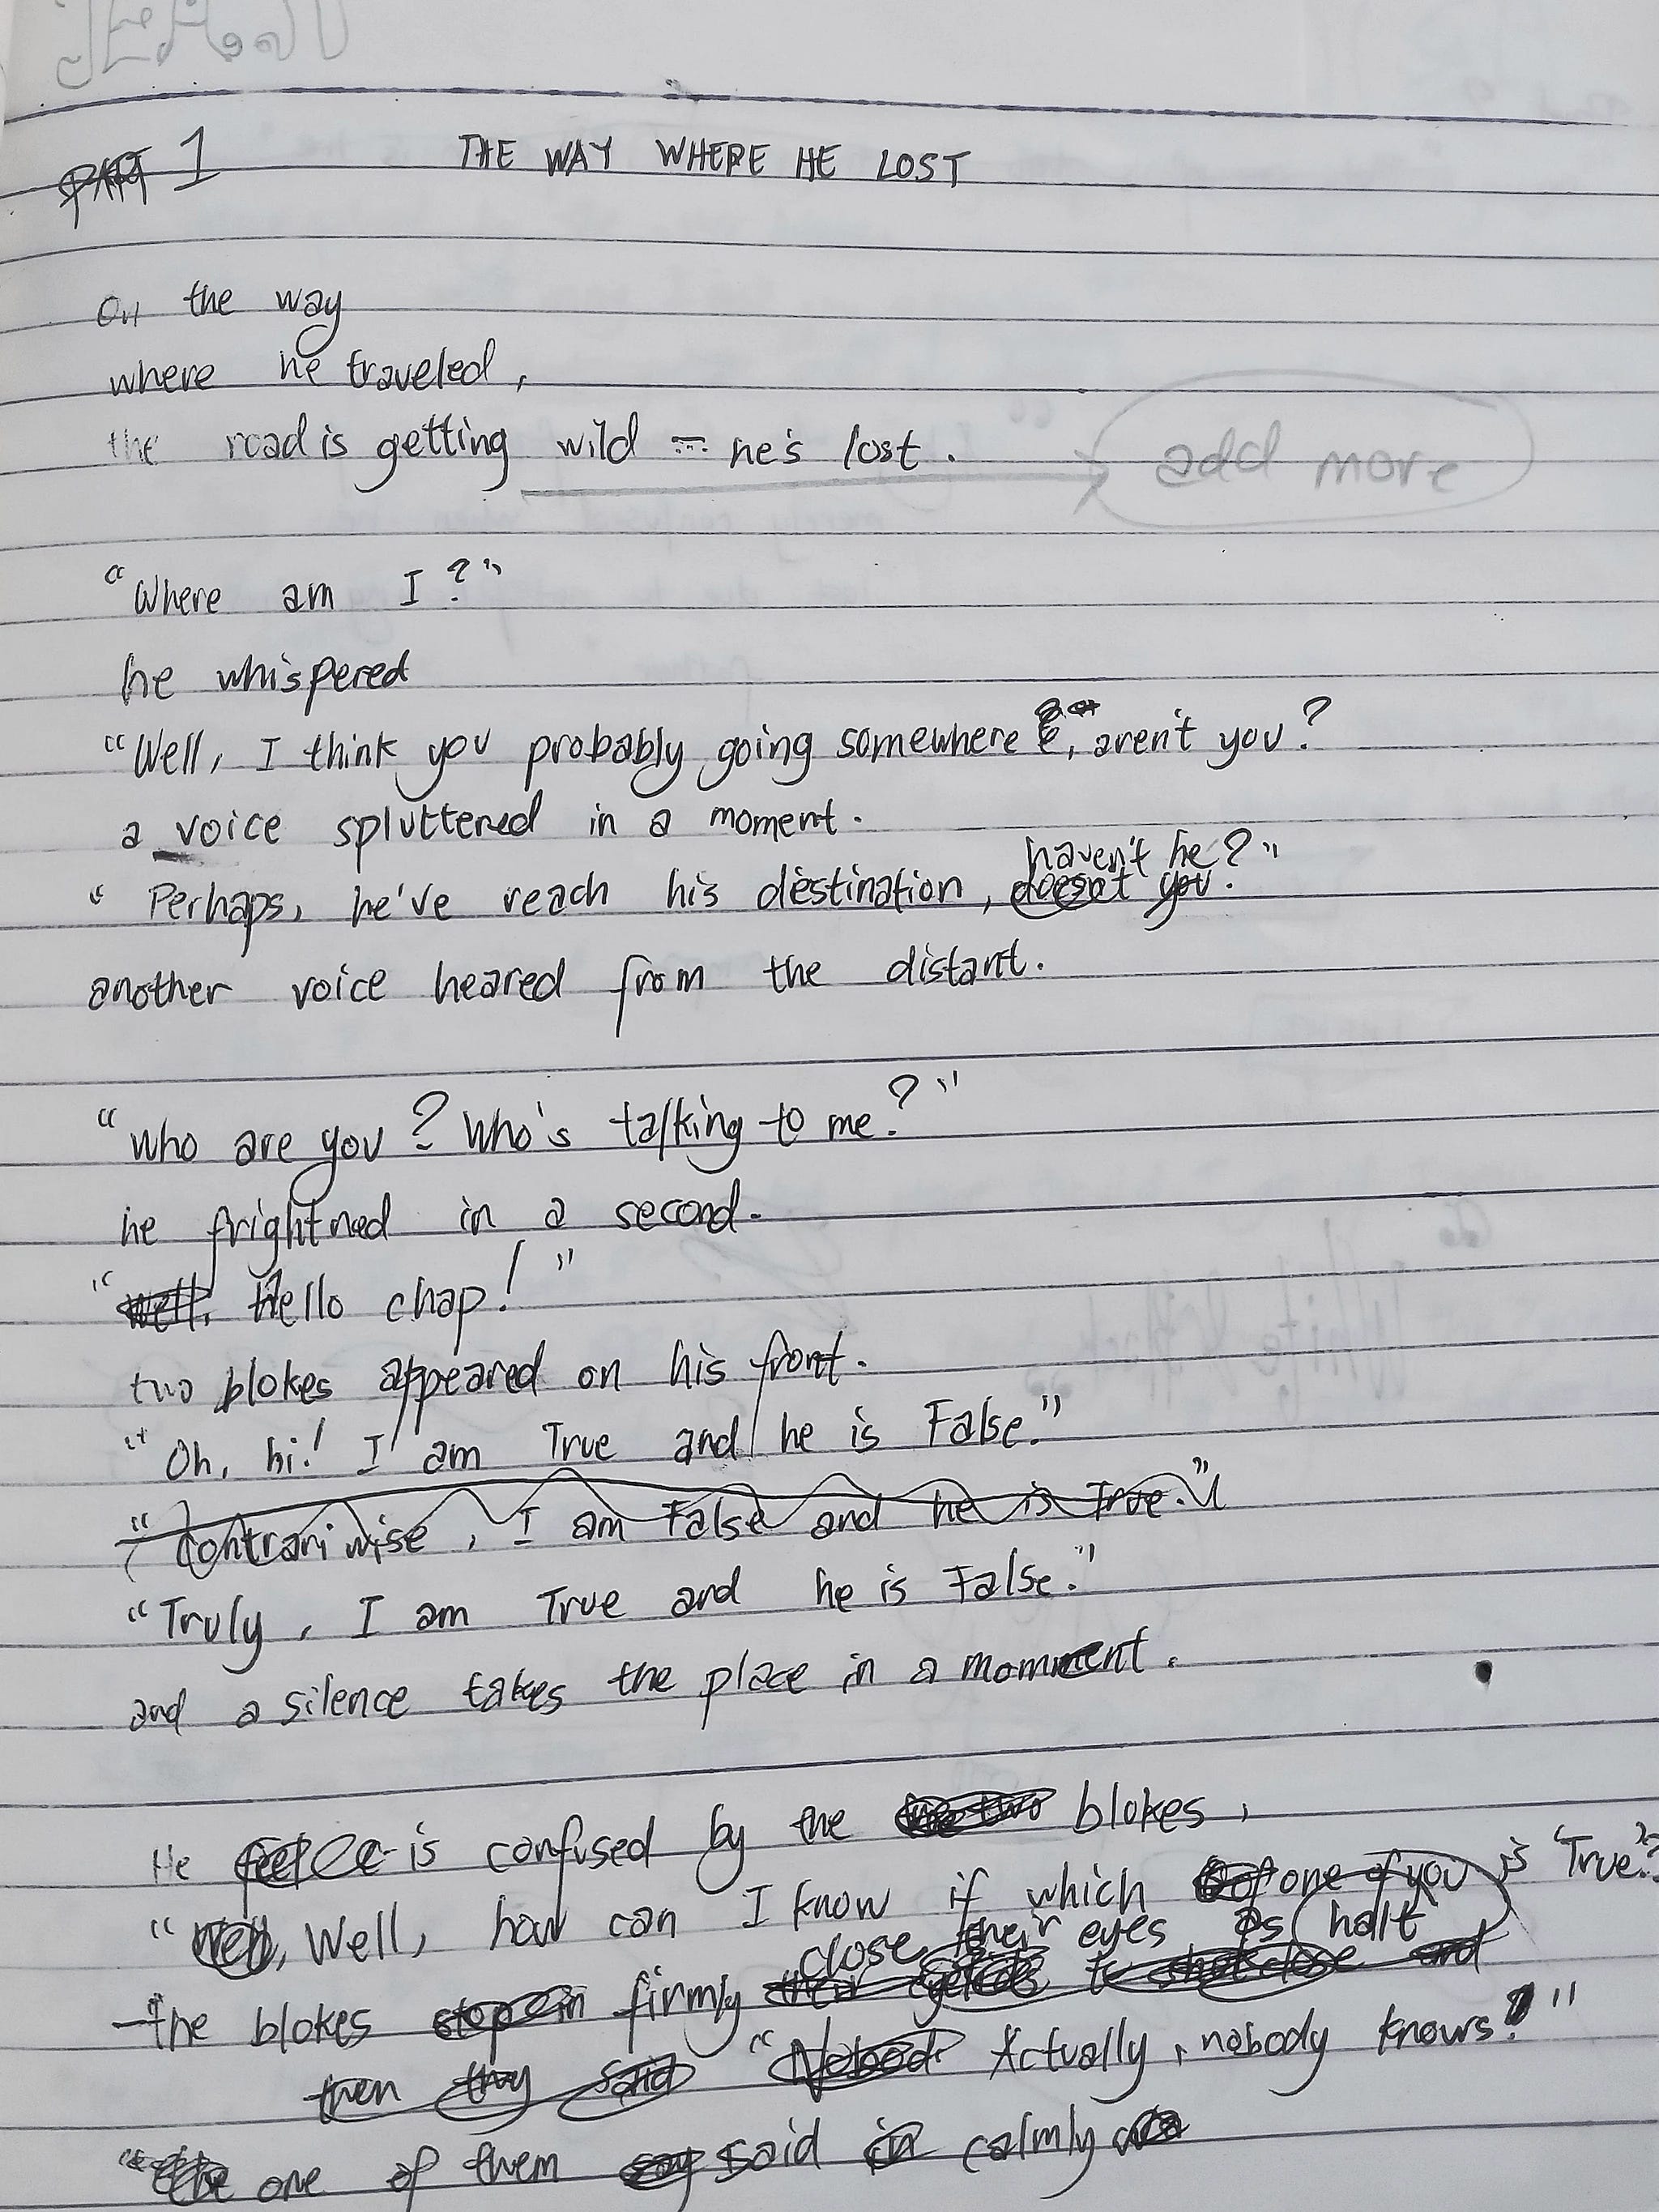 PART 1 THE WAY WHERE HE LOST
On the way
where he traveled,
the road is getting wild — he's lost.
add more
"Where am I?"
he whispered
"Well, I think you probably going somewhere, aren't you?
a voice spluttered in a moment.
haven't he?"
" Perhaps, he've reach his destination, doesn't you.
another voice heared from the distant.
"Who are you? Who's talking to me?"
he frightned in a second.
"well, Hello chap!"
two blokes appeared on his front.
"Oh, hi! I am True and he is False."
"Contrariwise, I am False and he is True."
"Truly, I am True and he is False."
and a silence takes the place in a momment.
He feel is confused by the the two blokes,
"Well, Well, how can I know if which one of you is 'True'?
close their eyes as half
—the blokes stop in firmly their eyelids to shut close and
then they said "Nobod Actually, nobody knows!"
"the one of them say said in calmly